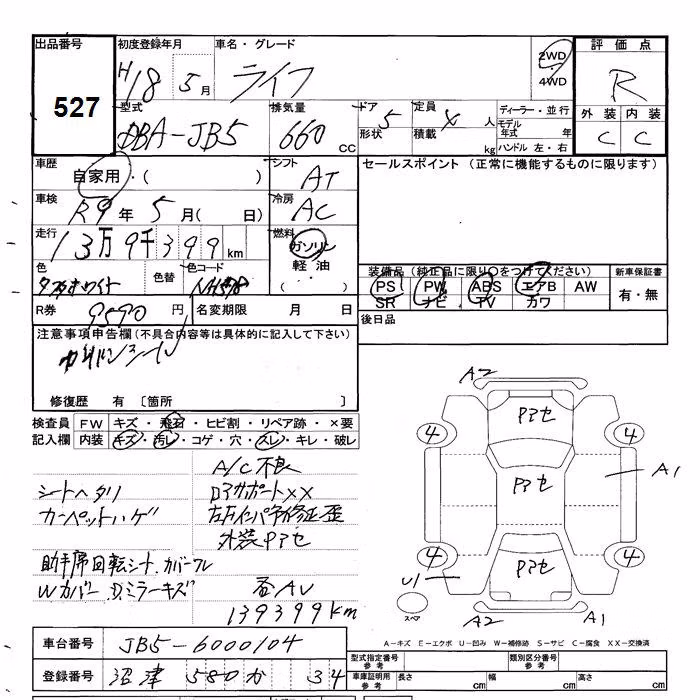 出品番号 初度登録年月 車名・グレード 2WD・4WD 評価点
527 H18 5月 ライフ R
型式 排気量 ドア形状 定員積載 ディーラー・並行 外装 内装
DBA-JB5 660 CC 5 4 人 kg モデル年式 年 ハンドル 左・右 C C
車歴 シフト セールスポイント (正常に機能するものに限ります)
自家用・( ) AT
車検 冷房
R9年 5月( 日) AC
走行 燃料
13万9千399km ガソリン
軽油
・( )
色 色替 色コード 装備品 (純正品に限り○をつけてください) 新車保証書
NH578 PS PW ABS エアB AW 有・無
SR ナビ TV カワ
R券 9590円 名変期限 月 日 後日品
注意事項申告欄(不具合内容等は具体的に記入して下さい)
修復歴 有 〔箇所 〕
検査員 FW キズ・飛石・ヒビ割・リペア跡・×要
記入欄 内装 キズ・汚レ・コゲ・穴・スレ・キレ・破レ
A/C不良
シートヘタリ
カーペットハゲ
外装ヤケ
助手席回転シート,カバーフレ
Wカバー,Dミラーキズ
139399km
A2
ヤケセ
4 4
ヤケセ A1
4 4
ヤケセ
U1
スペア A2 A1
A-キズ E-エクボ U-凹み W-補修跡 S-サビ C-腐食 XX-交換済
車台番号 JB5-6000104 型式指定番号 参考 類別区分番号 参考
登録番号 沼津 580 か 34 車庫証明用 参考 長さ cm 幅 cm 高さ cm